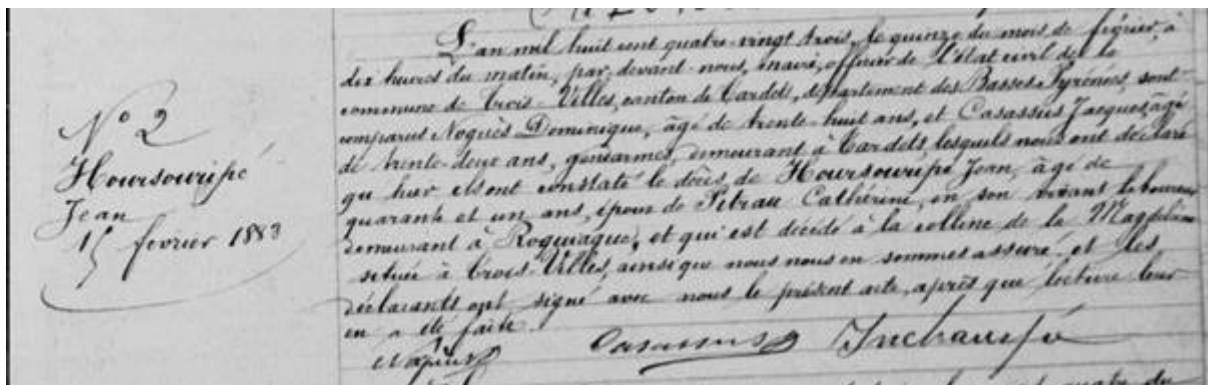 N° 2
Hoursouripé
Jean
15 fevrier 1883
L'an mil huit cent quatre-vingt trois, le quinze du mois de février, à
dix heures du matin, par devant nous, maire, officier de l'état civil de la
commune de Trois-Villes, canton de Tardets, département des Basses Pyrénées, sont
comparus Noguès Dominique, âgé de trente-huit ans, et Casassus Jacques, âgé
de trente-deux ans, gensarmes, demeurant à Tardets lesquels nous ont déclaré
qu'hier ils ont constaté le décès de Hoursouripé Jean, âge de
quarante et un ans, époux de Pitrau Cathérine, en son vivant laboureur
demeurant à Roquiague, et qui est décidé à la colline de la Magdeleine
située à Trois-Villes, ainsi que nous nous en sommes assuré, et les
déclarants ont signé avec nous le présent acte, après que lecture leur
en a été faite.
Casassus Inchauspé